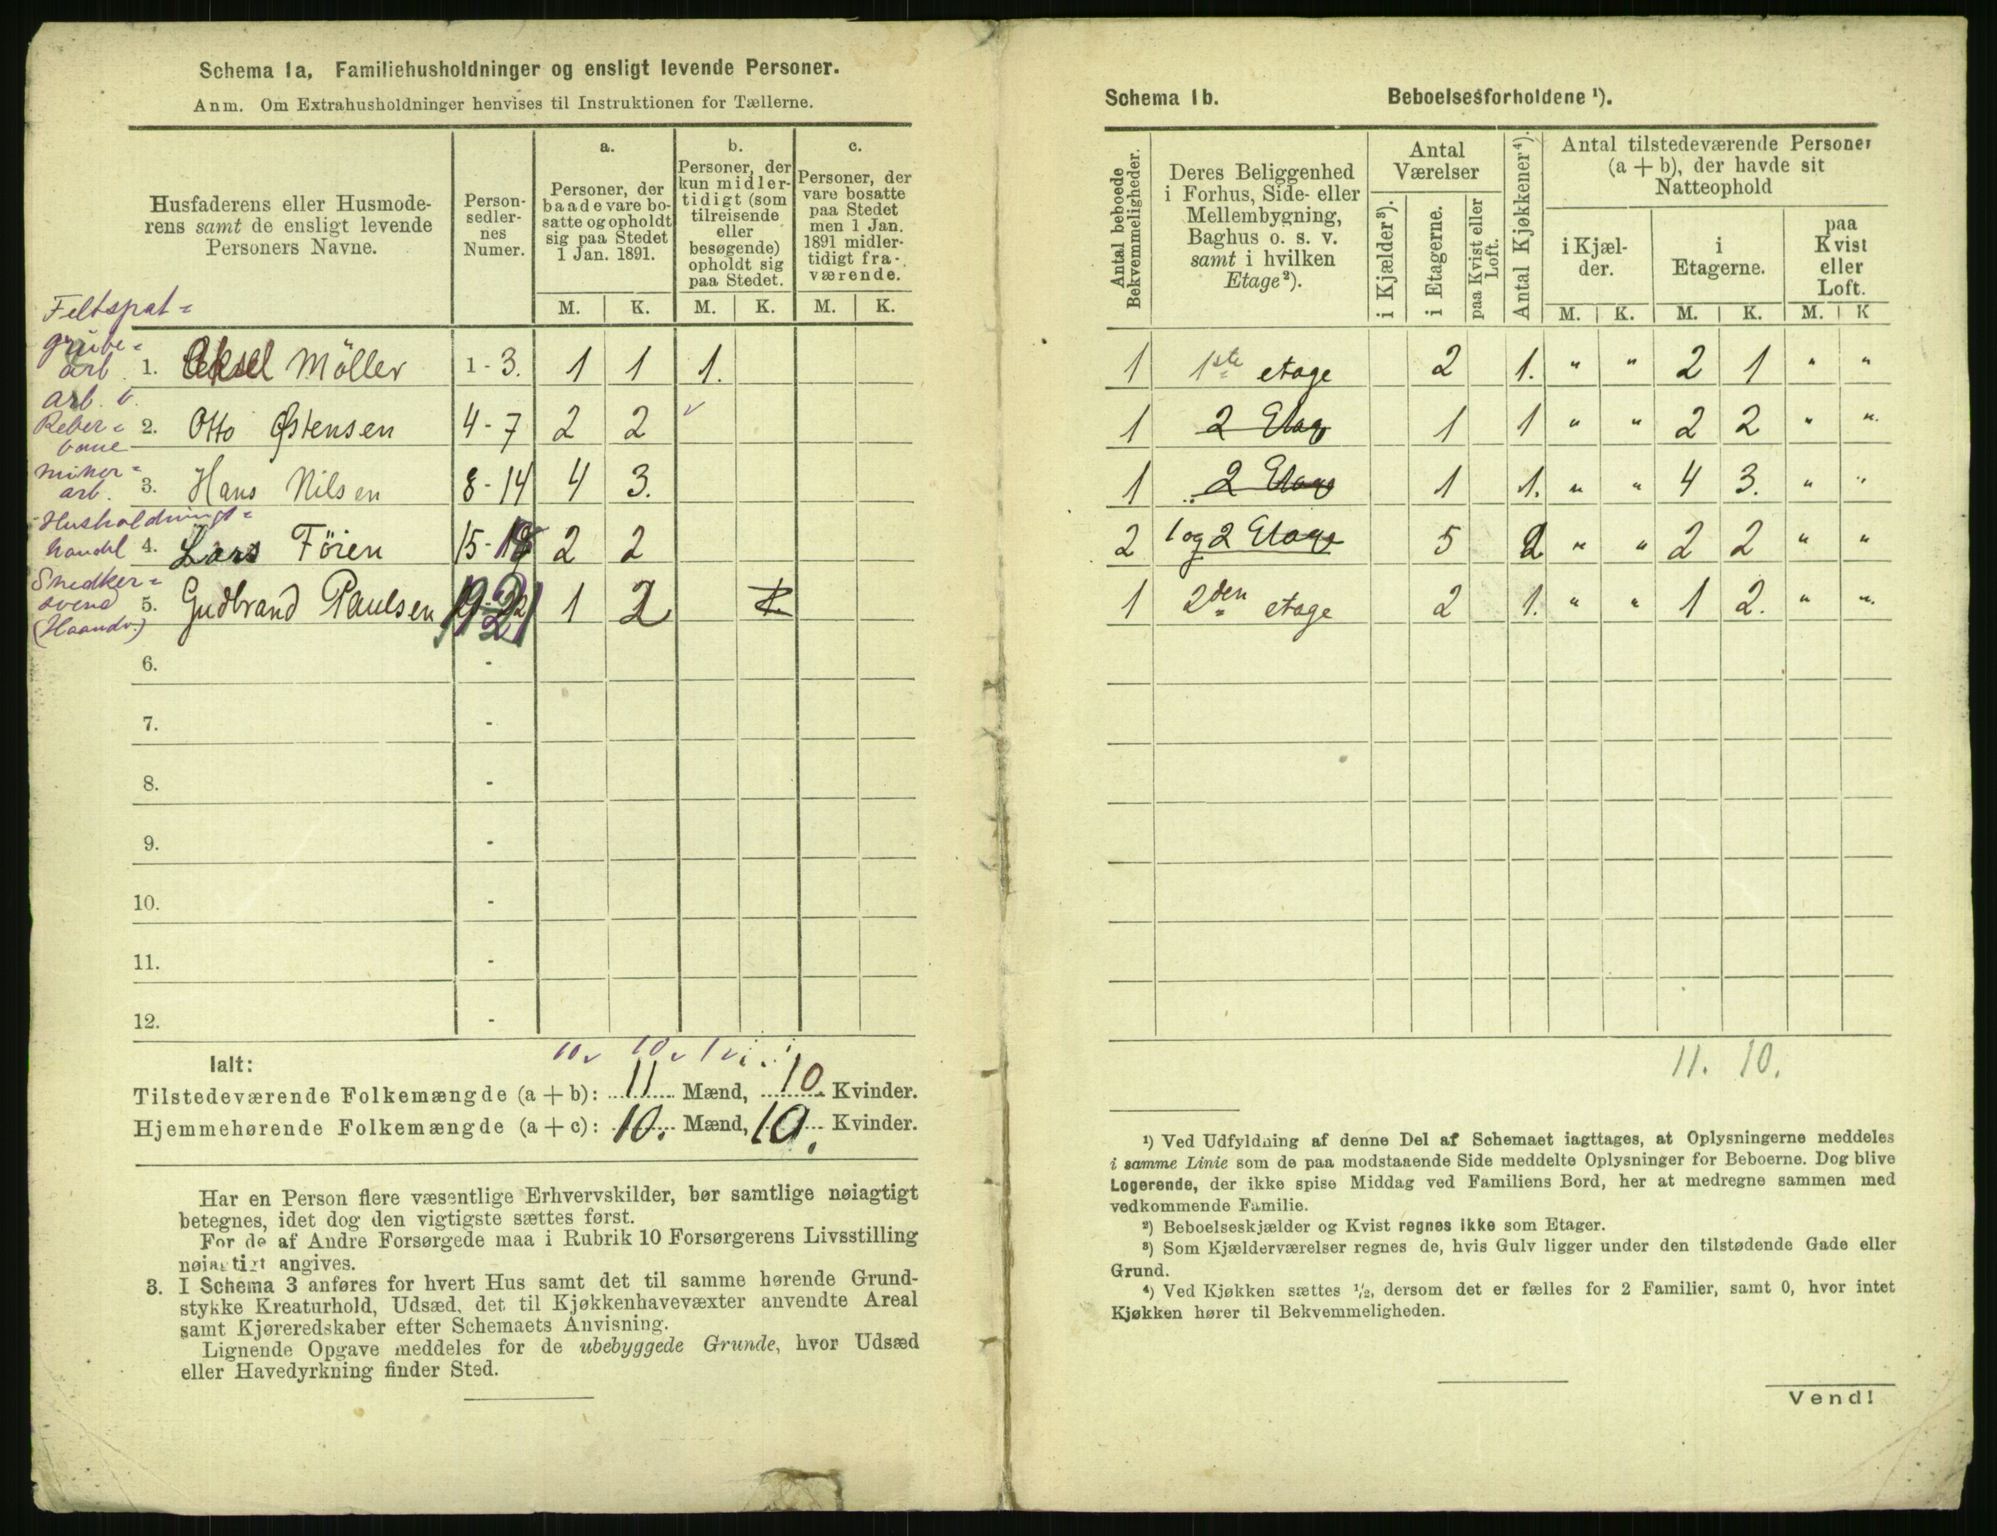 Schema 1a, Familiehusholdninger og ensligt levende Personer.
Anm. Om Extrahusholdninger henvises til Instruktionen for Tællerne.
Husfaderens eller Husmode-
rens samt de ensligt levende
Personers Navne.
Person-
sedler-
nes
Numer.
a.
Personer, der
baade vare bo-
satte og opholdt
sig paa Stedet
1 Jan. 1891.
b.
Personer, der
kun midler-
tidigt (som
tilreisende
eller
besøgende)
opholdt sig
paa Stedet.
c.
Personer, der
vare bosatte
paa Stedet
men 1 Jan.
1891 midler-
tidigt fra-
værende.
M. K. M. K. M. K.
Feltspat-
grube-
arb. 1. Aksel Möller 1 - 3. 1 1 1.
arb. v.
Reber-
bane 2. Otto Østensen 4 - 7 2 2
miner-
arb. 3. Hans Nilsen 8 - 14 4 3.
Husholdnings-
handel 4. Lars Föien 15 - 18 2 2
Snedker-
svend
(Haandv.) 5. Gudbrand Paulsen 19-21 1 2
6. -
7. -
8. -
9. -
10. -
11. -
12. -
10 10 1
Ialt:
Tilstedeværende Folkemængde (a + b): 11 Mænd, 10. Kvinder.
Hjemmehørende Folkemængde (a + c): 10. Mænd, 10. Kvinder.
Har en Person flere væsentlige Erhvervskilder, bør samtlige nøiagtigt
betegnes, idet dog den vigtigste sættes først.
For de af Andre Forsørgede maa i Rubrik 10 Forsørgerens Livsstilling
nøiagtigt angives.
3. I Schema 3 anføres for hvert Hus samt det til samme hørende Grund-
stykke Kreaturhold, Udsæd, det til Kjøkkenhavevæxter anvendte Areal
samt Kjøreredskaber efter Schemaets Anvisning.
Lignende Opgave meddeles for de ubebyggede Grunde, hvor Udsæd
eller Havedyrkning finder Sted.
Schema 1b. Beboelsesforholdene ¹).
Antal beboede
Bekvemmeligheder.
Deres Beliggenhed
i Forhus, Side- eller
Mellembygning,
Baghus o. s. v.
samt i hvilken
Etage²).
Antal
Værelser
i Kjælder³).
i Etagerne.
paa Kvist eller
Loft.
Antal Kjøkkener⁴).
Antal tilstedeværende Personer
(a + b), der havde sit
Natteophold
i Kjæl-
der.
i
Etagerne.
paa
Kvist
eller
Loft.
M. K. M. K. M. K
1 1ste etage 2 1. " " 2 1 " "
1 2 Etage 1 1 " " 2 2 " "
1 2 Etage 1 1. " " 4 3. " "
2 1 og 2 Etage 5 2 " " 2 2 " "
1 2den etage 2 1. " " 1 2. " "
11. 10.
¹) Ved Udfyldning af denne Del af Schemaet iagttages, at Oplysningerne meddeles
i samme Linie som de paa modstaaende Side meddelte Oplysninger for Beboerne. Dog blive
Logerende, der ikke spise Middag ved Familiens Bord, her at medregne sammen med
vedkommende Familie.
²) Beboelseskjælder og Kvist regnes ikke som Etager.
³) Som Kjælderværelser regnes de, hvis Gulv ligger under den tilstødende Gade eller
Grund.
⁴) Ved Kjøkken sættes ½, dersom det er fælles for 2 Familier, samt 0, hvor intet
Kjøkken hører til Bekvemmeligheden.
Vend!